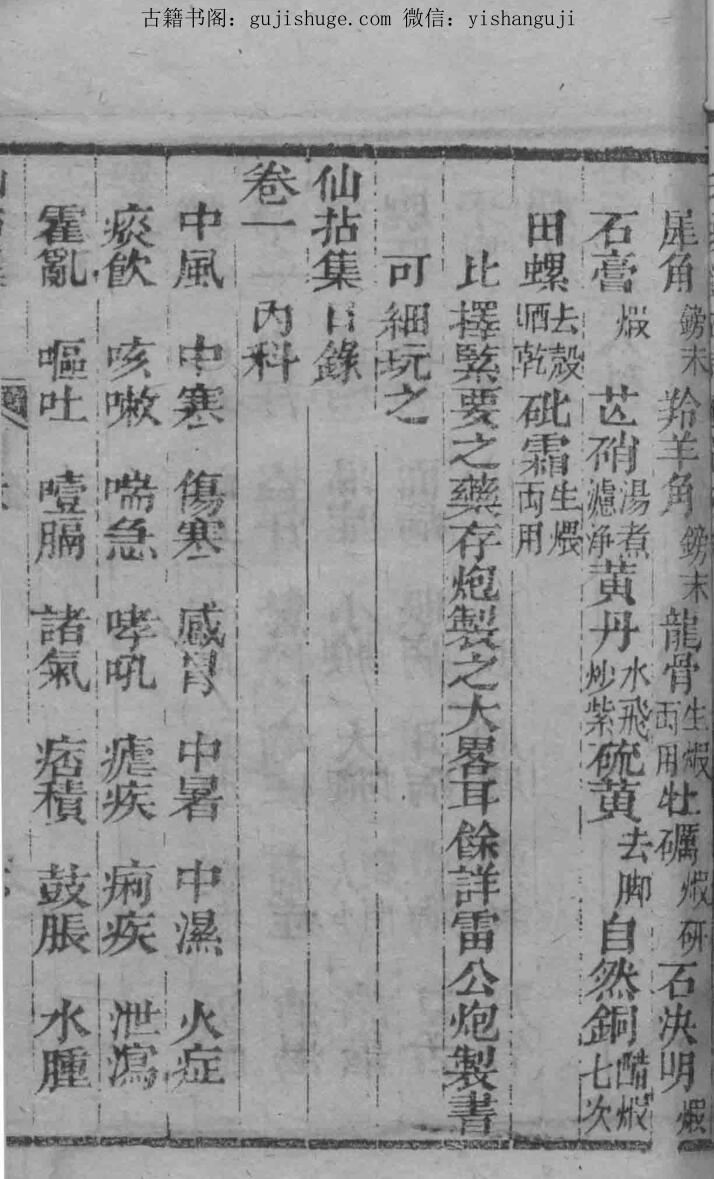 古籍书阁：gujishuge.com 微信：yishanguji
犀角鎊末羚羊角鎊末龍骨生煅兩用牡礪煅研石决明煅
石膏煅芒硝湯煮濾净黃丹水飛炒紫硫黃去脚自然銅醋煅七次
田螺去殼晒乾砒霜生煨兩用
比擇緊要之藥存炮製之大畧耳餘詳雷公炮製書
可細玩之
仙拈集目錄
卷一 內科
中風 中寒 傷寒 感冒 中暑 中濕 火症
痰飲 咳嗽 喘急 哮吼 瘧疾 痢疾 泄瀉
霍亂 嘔吐 噎膈 諸氣 痞積 鼓脹 水腫